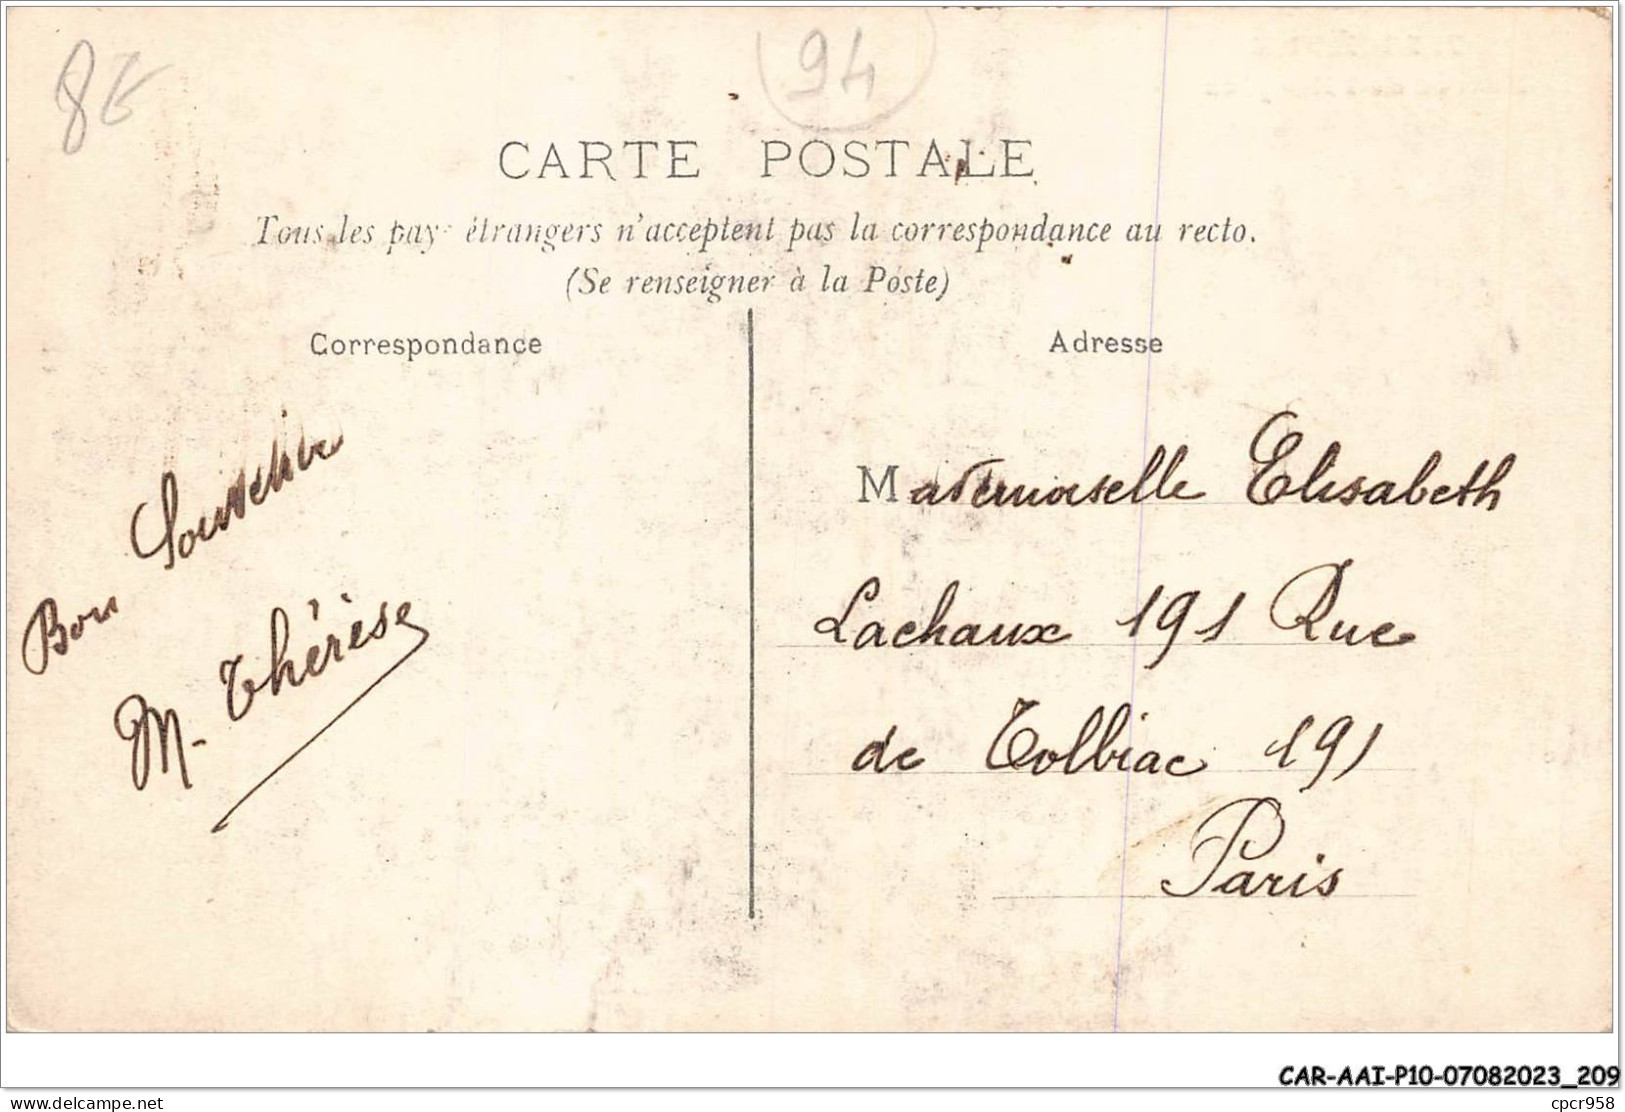 8€
94
CARTE POSTALE
Tous les pays étrangers n'acceptent pas la correspondance au recto.
(Se renseigner à la Poste)
Correspondance
Adresse
Bon Souvenir
M. Thérèse
Mademoiselle Elisabeth
Lachaux 191 Rue
de Tolbiac 191
Paris
CAR-AAI-P10-07082023_209
www.delcampe.net
cpcr958